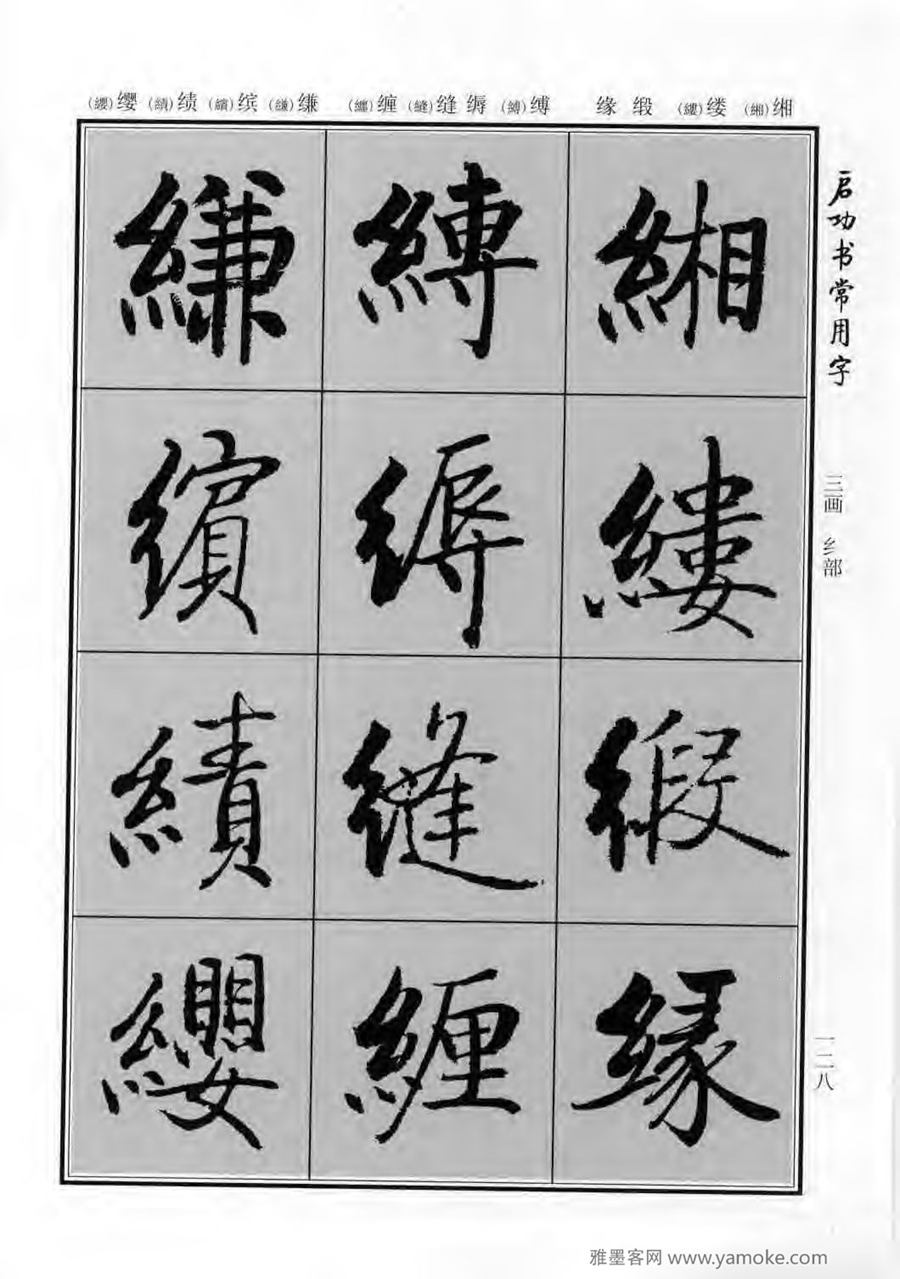 (纓)缨 (績)绩 (繽)缤 (縑)缣 (纏)缠 (縫)缝 缛 (縛)缚 缘 缎 (縷)缕 (緗)缃
启功书常用字
三画 纟部
一二八
緗
縷
緞
緣
縛
縟
縫
纏
縑
繽
績
纓
雅墨客网 www.yamoke.com